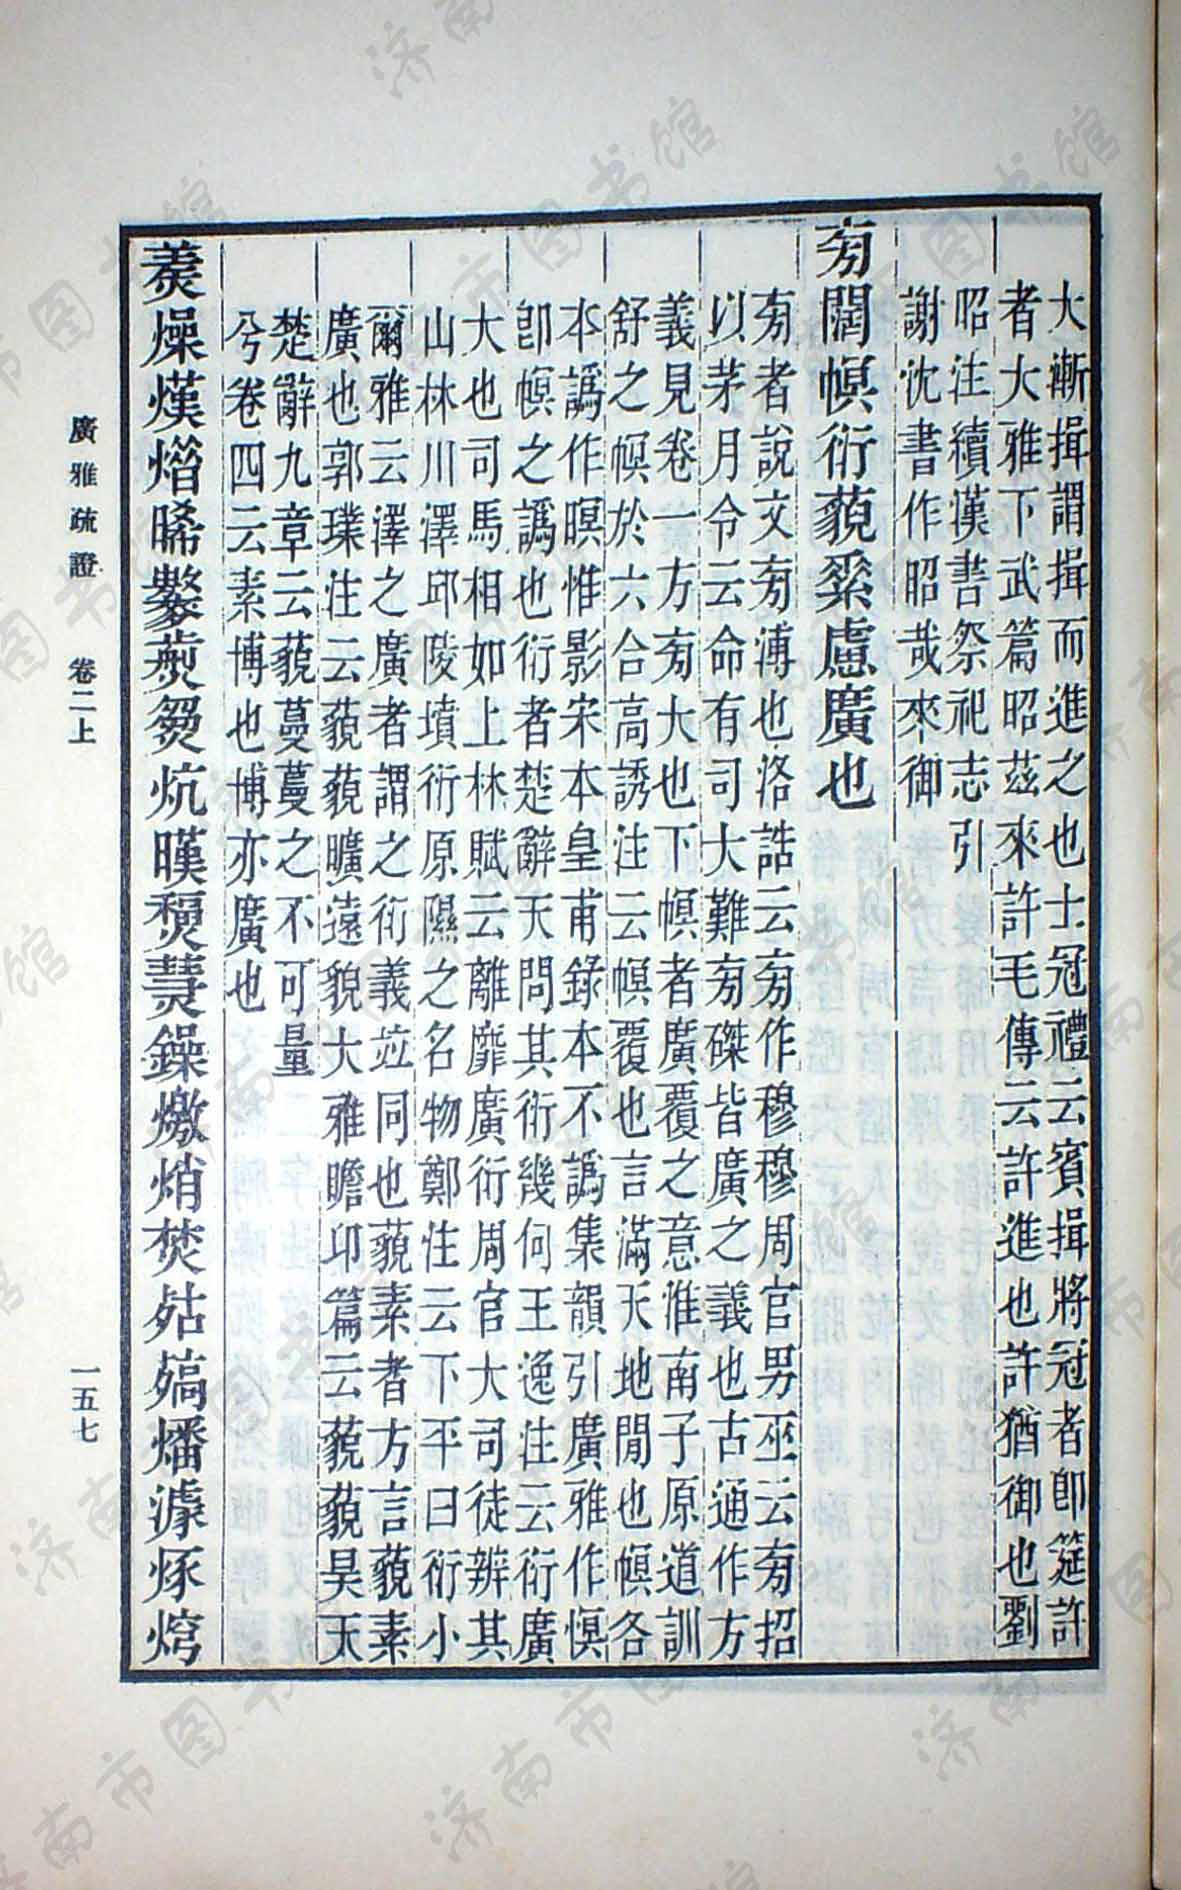 大漸揖謂揖而進之也士冠禮云賓揖將冠者卽筵許
者大雅下武篇昭茲來許毛傳云許進也許猶御也劉
昭注續漢書祭祀志引
謝沈書作昭哉來御
㫄闊幎衍藐索慮廣也
㫄者說文㫄溥也洛誥云㫄作穆穆周官男巫云㫄招
以茅月令云命有司大難㫄磔皆廣之義也古通作方
義見卷一方㫄大也下幎者廣覆之意淮南子原道訓
舒之幎於六合高誘注云幎覆也言滿天地閒也幎各
本譌作暝惟影宋本皇甫錄本不譌集韻引廣雅作慏
卽幎之譌也衍者楚辭天問其衍幾何王逸注云衍廣
大也司馬相如上林賦云離靡廣衍周官大司徒辨其
山林川澤邱陵墳衍原隰之名物鄭注云下平曰衍小
爾雅云澤之廣者謂之衍義竝同也藐素者方言藐素
廣也郭璞注云藐藐曠遠貌大雅瞻卬篇云藐藐昊天
楚辭九章云藐蔓蔓之不可量
兮卷四云素博也博亦廣也
燥熯熸晞焣炕暵鐰燉焇焚㱠熇燔㶿
廣雅疏證 卷二上
一五七
济南市图书馆